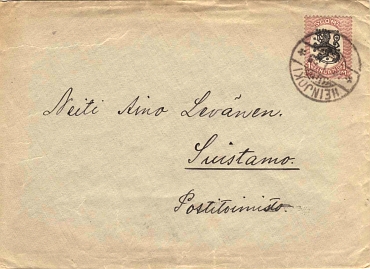 SUOMI
HEINJOKI
Neiti Aino Levänen.
Suistamo.
Postitoimisto.